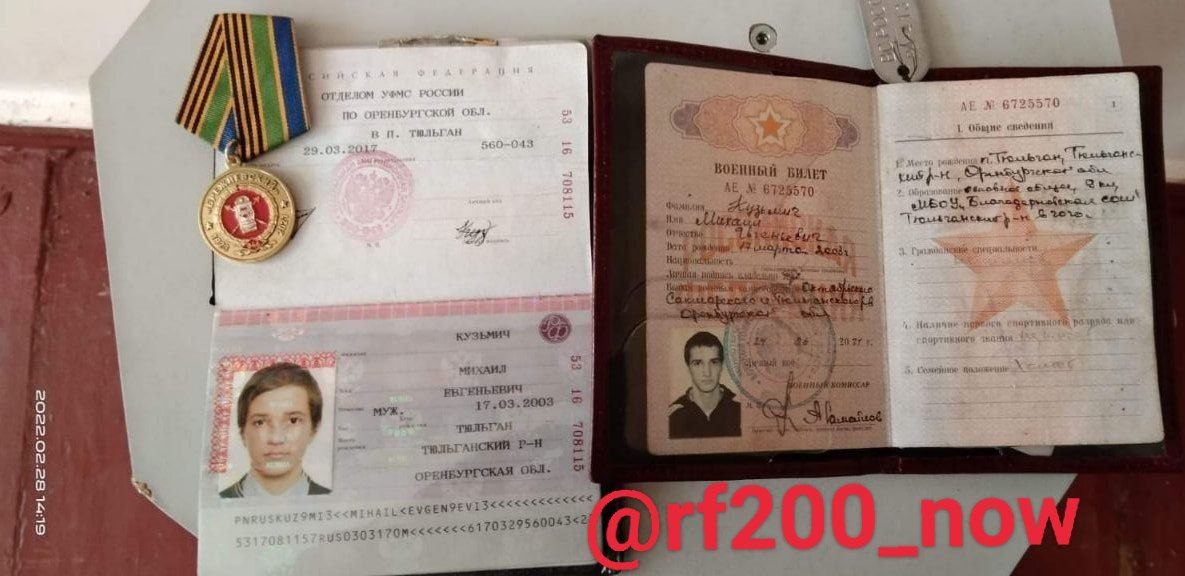 СИЙСКАЯ ФЕДЕРАЦИЯ
ОТДЕЛОМ УФМС РОССИИ
ПО ОРЕНБУРГСКОЙ ОБЛ.
В П. ТЮЛЬГАН
29.03.2017 560-043
53 16 708115
КУЗЬМИЧ
МИХАИЛ
ЕВГЕНЬЕВИЧ
МУЖ. 17.03.2003
ТЮЛЬГАН
ТЮЛЬГАНСКИЙ Р-Н
ОРЕНБУРГСКАЯ ОБЛ.
53 16 708115
PNRUSKUZ9MI3<<MIHAIL<EVGEN9EVI3<<<<<<<<<<<<<
5317081157RUS0303170M<<<<<<<6170329560043<2
ВОЕННЫЙ БИЛЕТ
АЕ № 6725570
Фамилия Кузьмич
Имя Михаил
Отчество Евгеньевич
Дата рождения 17 марта 2003г
Национальность
Личная подпись владельца
Октябрьского
Сакмарского и Тюльганского р-в
Оренбургская обл
2021 г.
ВОЕННЫЙ КОМИССАР
АЕ № 6725570 1
I. Общие сведения
1. Место рождения п. Тюльган, Тюльганс-
кий р-н, Оренбургская обл
2. Образование основное общее, 9 кл
Тюльганский р-н
3. Гражданские специальности
4. Наличие первого спортивного разряда или
спортивного звания
5. Семейное положение Холост
2022.02.28 14:19
@rf200_now